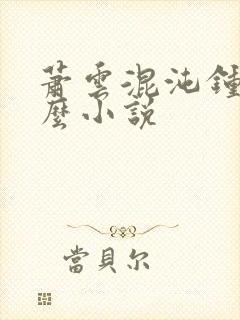 蕭雲混沌鍾
麼小說
當貝尔